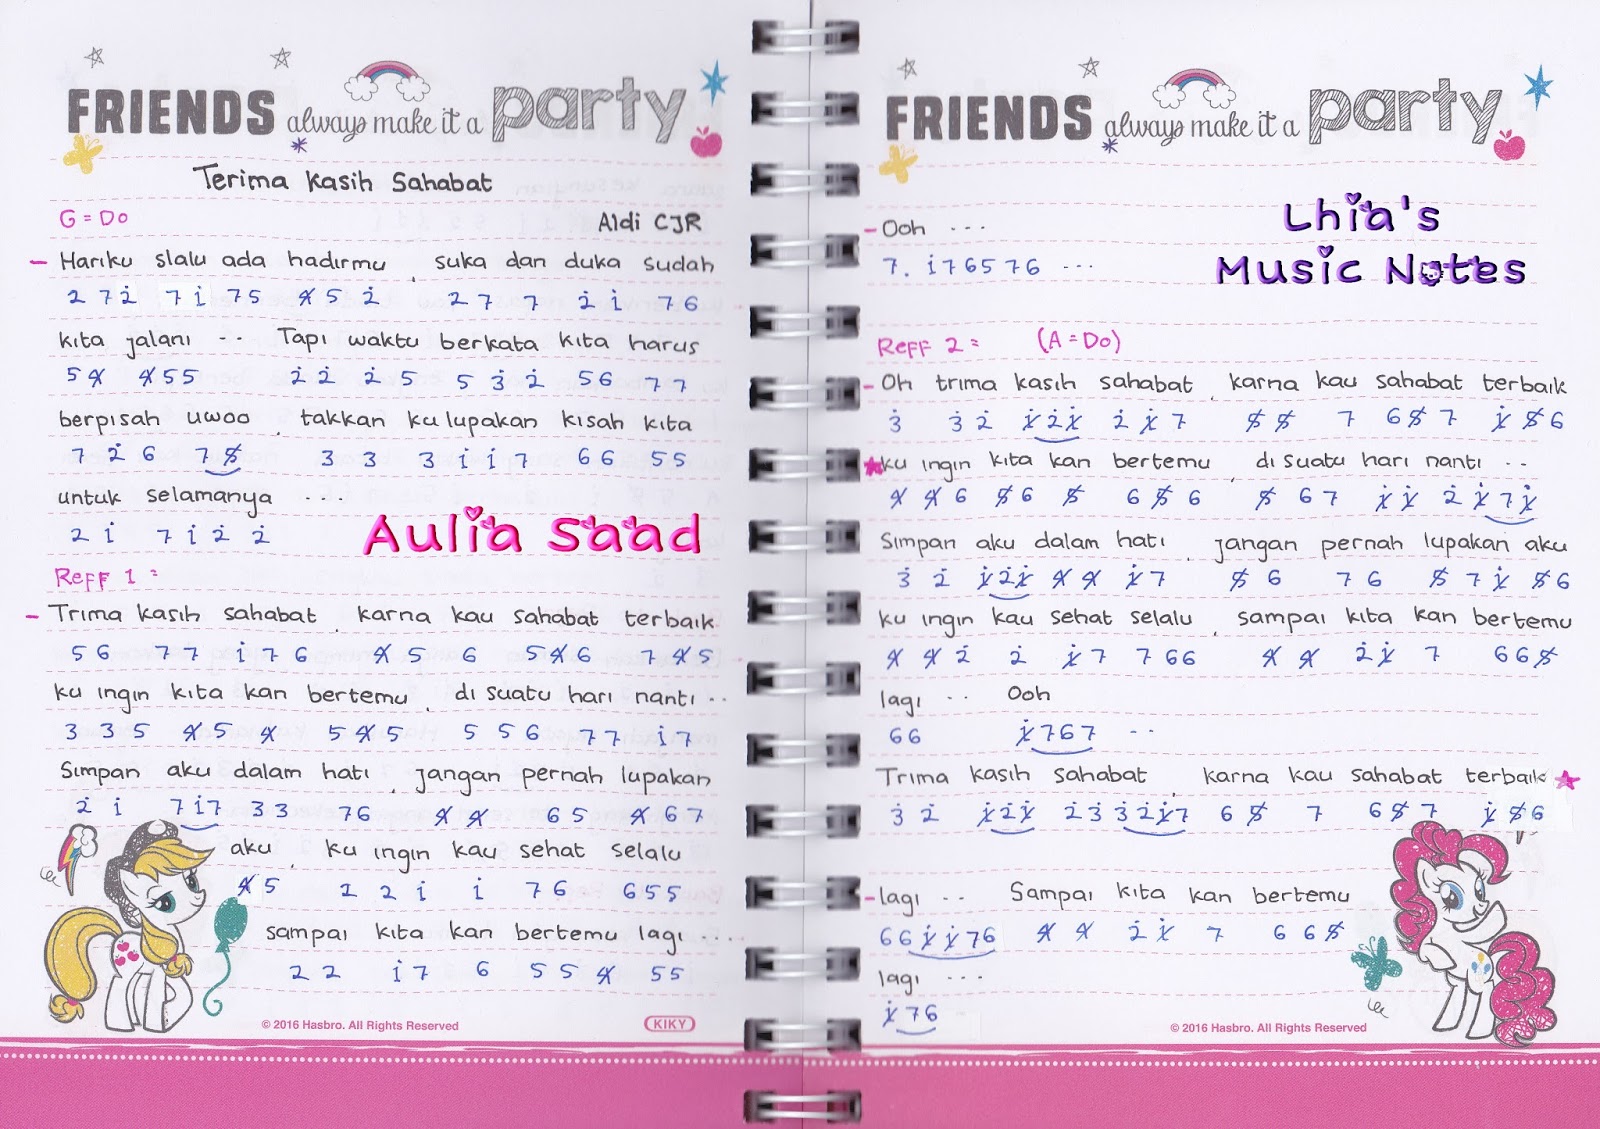 FRIENDS always make it a party
Terima Kasih Sahabat
G = Do Aldi CJR
- Hariku slalu ada hadirmu , suka dan duka sudah
2 7 2̇ 7 1̇ 7 5 4̸ 5 2̇ 2 7 7 2̇ 1̇ 7 6
kita jalani -- Tapi waktu berkata kita harus
5 4̸ 4̸ 5 5 2̇ 2̇ 2̇ 5 5 3̇ 2̇ 5 6 7 7
berpisah uwoo , takkan ku lupakan kisah kita
7 2̇ 6 7 5̸ 3 3 3 1̇ 1̇ 7 6 6 5 5
untuk selamanya ...
2 1̇ 7 1̇ 2̇ 2̇
Aulia Saad
Reff 1 =
- Trima kasih sahabat , karna kau sahabat terbaik
5 6 7 7 1̇ 7 6 4̸ 5 6 5 4̸ 6 7 4̸ 5
ku ingin kita kan bertemu , di suatu hari nanti --
3 3 5 4̸ 5 4̸ 5 4̸ 5 5 5 6 7 7 1̇ 7
Simpan aku dalam hati , jangan pernah lupakan
2̇ 1̇ 7 1̇ 7 3 3 7 6 4̸ 4̸ 6 5 4̸ 6 7
aku , ku ingin kau sehat selalu
4̸ 5 2 2 1̇ 1̇ 7 6 6 5 5
sampai kita kan bertemu lagi ....
2 2 1̇ 7 6 5 5 4̸ 5 5
© 2016 Hasbro. All Rights Reserved KIKY
FRIENDS always make it a party
Lhia's
Music Notes
- Ooh ...
7 . 1̇ 7 6 5 7 6 ...
Reff 2 = (A = Do)
- Oh trima kasih sahabat , karna kau sahabat terbaik
3̇ 3̇ 2̇ 1̸̇ 2̇ 1̸̇ 2̇ 1̸̇ 7 5̸ 5̸ 7 6 5̸ 7 1̸̇ 5̸ 6
★ ku ingin kita kan bertemu , di suatu hari nanti --
4̸ 4̸ 6 5̸ 6 5̸ 6 5̸ 6 5̸ 6 7 1̸̇ 1̸̇ 2̇ 1̸̇ 7 1̸̇
Simpan aku dalam hati , jangan pernah lupakan aku
3̇ 2̇ 1̸̇ 2̇ 1̸̇ 4̸ 4̸ 1̸̇ 7 5̸ 6 7 6 5̸ 7 1̸̇ 5̸ 6
ku ingin kau sehat selalu , sampai kita kan bertemu
4̸ 4̸ 2̇ 2̇ 1̸̇ 7 7 6 6 4̸ 4̸ 2̇ 1̸̇ 7 6 6 5̸
lagi -- Ooh
6 6 1̸̇ 7 6 7 --
Trima kasih sahabat , karna kau sahabat terbaik ★
3̇ 2̇ 1̸̇ 2̇ 1̸̇ 2̇ 3̇ 3̇ 2̇ 1̸̇ 7 6 5̸ 7 6 5̸ 7 1̸̇ 5̸ 6
- lagi -- Sampai kita kan bertemu
6 6 1̸̇ 1̸̇ 7 6 4̸ 4̸ 2̇ 1̸̇ 7 6 6 5̸
lagi ...
1̸̇ 7 6
© 2016 Hasbro. All Rights Reserved